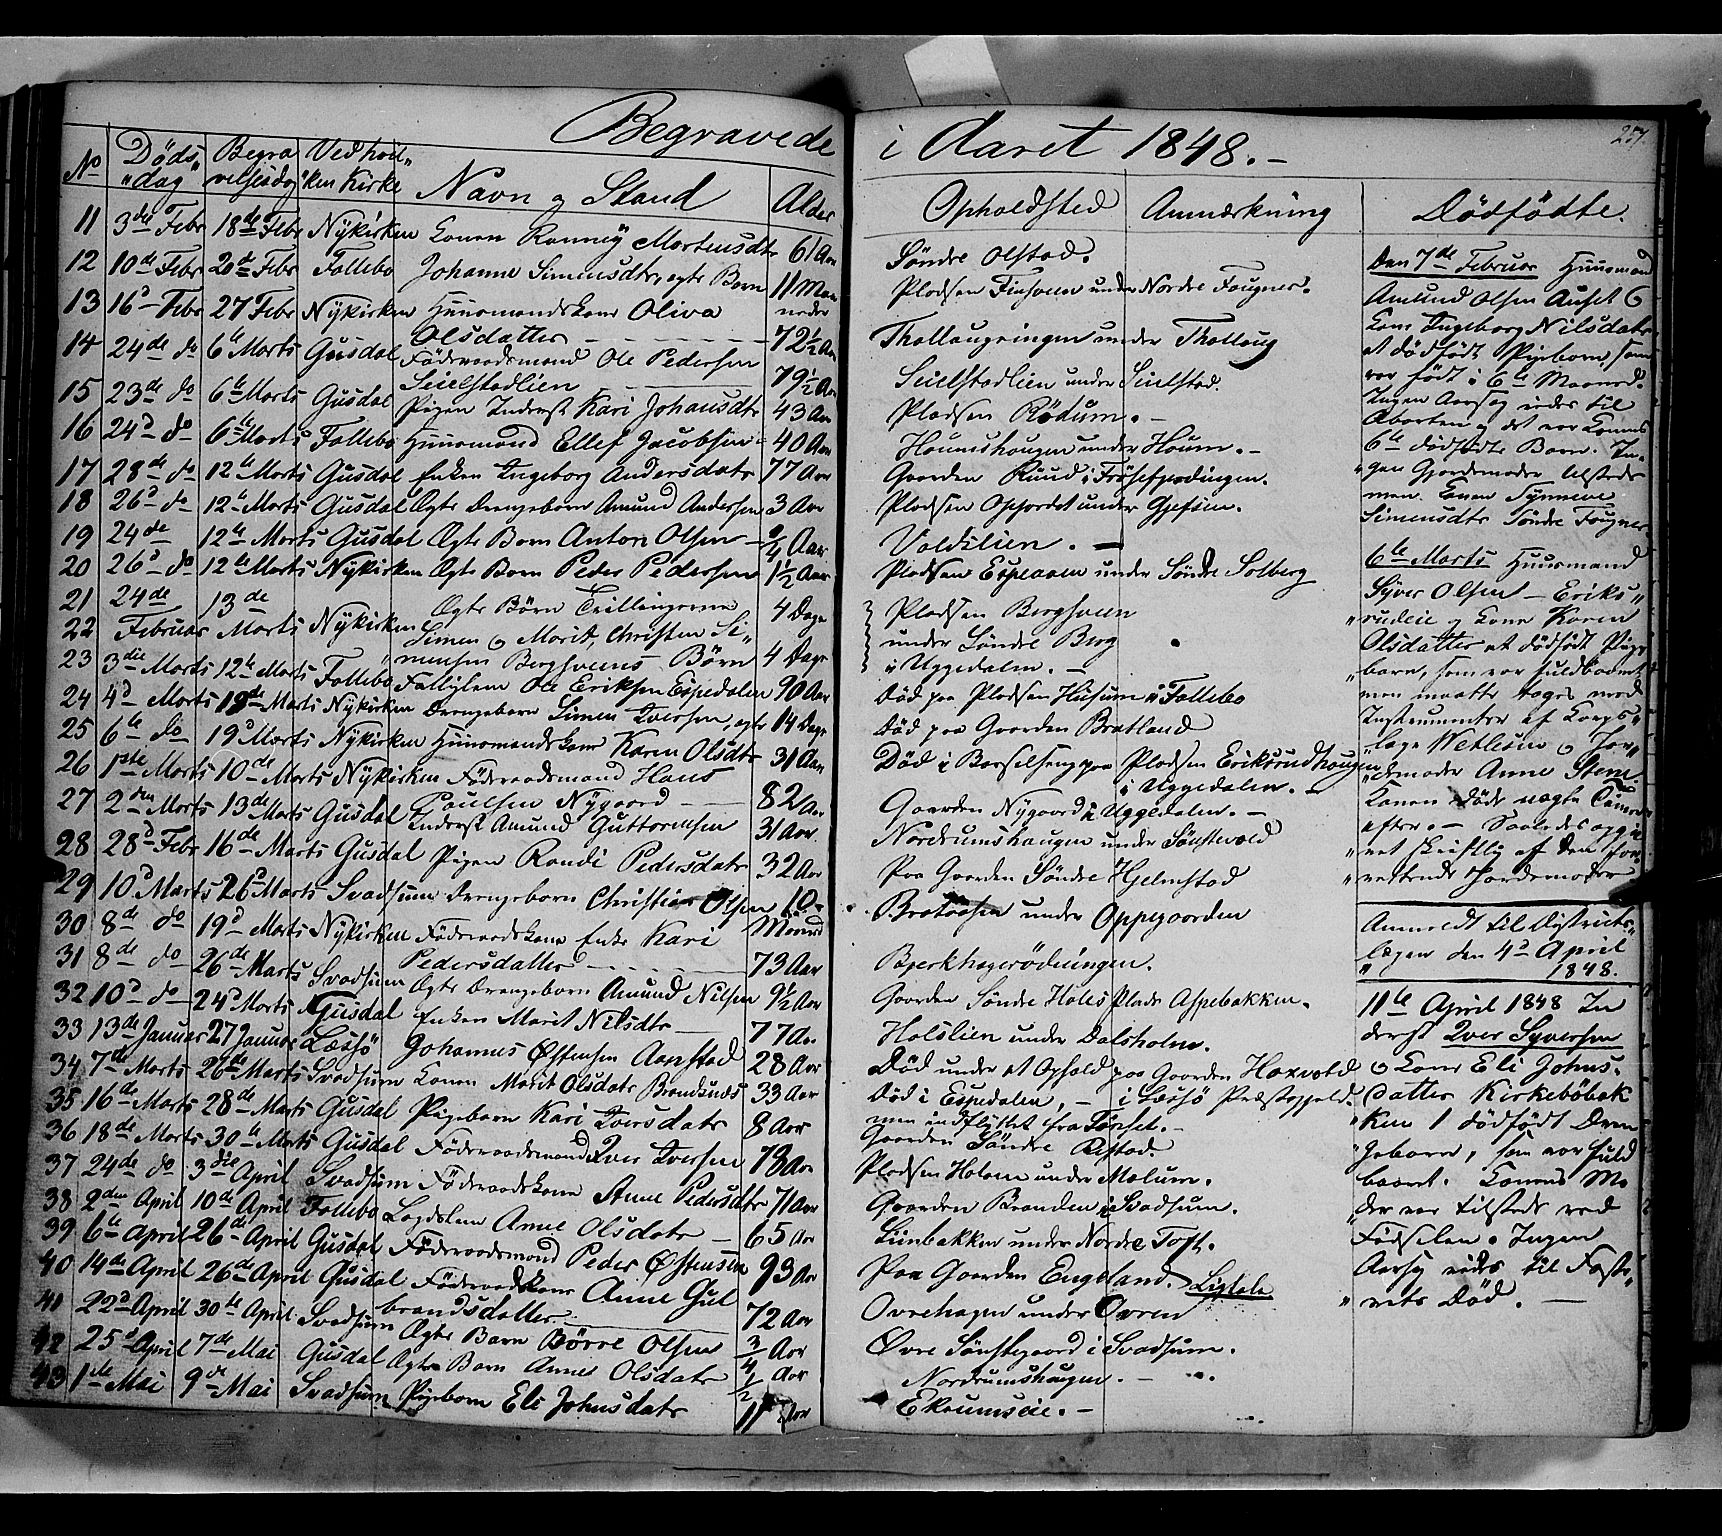 Begravede i Aaret 1848. –
257.
No Døds„ „dag Begra velsesdag Ved hvil„ „ken Kirke Navn og Stand Alder Opholdsted Anmærkning Dødfødte.
11 3die Febr 18de Febr Nykirken Konen Ronney Mortensdtr 61 Aar Søndre Olstad.
12 10de Febr 20de Febr Follebo Johanne Simensdtr, egte Barn 11 Maaneder Pladsen Finsveen under Nordre Fougner.
13 16d Febr 27 Febr Nykirken Huusmandskone Oliva Olsdatter 72½ Aar Thallaugringen under Thallaug
14 24de do 6te Marts Gusdal Föderaadsmand Ole Pedersen Seielstadlien 79½ Aar Seielstadlien under Seielstad.
15 23de do 6te Marts Gusdal Pigen Inderst Kari Johansdtr 43 Aar Pladsen Rödum. –
16 24d do 6te Marts Follebo Huusmand Ellef Jacobsen 40 Aar Houmshaugen under Houm. –
17 28de do 12te Marts Gusdal Enken Ingeborg Andersdatr 77 Aar Gaarden Ruud i
18 26d do 12te Marts Gusdal Egte Drengebarn Amund Andersen 3 Aar Pladsen Opjordet under
19 24de 12te Marts Gusdal Egte Barn Anton Olsen ¾ Aar Voldslien. –
20 26d do 12te Marts Nykirken Egte Barn Peder Pedersen 1½ Aar Pladsen Espeaaen under Søndre Solberg
21 24de 13de Egte Børn Trillingerne 4 Dage Pladsen Bergsveen
22 Februar Marts Nykirken Simen og Marit, Christen Si„ under Søndre Berg
23 3die Marts 12te Marts Follebo „mensen Bergsveens Børn 4 Dage i Uggedalen. –
24 4d Marts 19de Marts Nykirken Fattiglem Ole Eriksen Espedalen 90 Aar Död paa Pladsen Huusum i Follebo
25 6te do 19d Marts Nykirken Drengebarn Simen Iversen, egte 14 Dage Död paa Gaarden Bratland
26 1ste Marts 10de Marts Nykirken Huusmandskone Karen Olsdtr 31 Aar Död i Barselseng paa Pladsen Eriksrudhaugen i Uggedalen. –
27 2den Marts 13de Marts Gusdal Föderaadsmand Hans Paulsen Nygaard 82 Aar Gaarden Nygaard i Uggedalen. –
28 28d Febr 16de Marts Gusdal Inderst Amund Guttormsen 31 Aar Nordrumshaugen under Sønstevold
29 10d Marts 26d Marts Svadsum Pigen Randi Pedersdatr 32 Aar Paa Gaarden Søndre Hjelmstad
30 8de do 19d Marts Nykirken Drengebarn Christian Olsen 10 Maaned under Oppegaarden
31 8de do 26de Marts Svadsum Föderaadskone Enke Kari Pedersdatter 73 Aar Bjerkhagerödningen.
32 10d do 24d Marts Gusdal Egte Drengebarn Amund Nilsen 9½ Aar Gaarden Søndre Holes Plads Aspebakken.
33 13de Januar 27 Januar Læssö Enken Marit Nilsdtr 77 Aar Holslien under Dalsholm.
34 7de Marts 26de Marts Svadsum Johannes Østensen Aanstad 28 Aar Död under et Ophold paa Gaarden Horvold
35 16de Marts 28de Marts Gusdal Konen Marit Olsdatr Brendsnæs 33 Aar Död i Espedalen, – i Læssö Præstegjeld. men indflyttet fra Torset. –
36 18de Marts 30te Marts Gusdal Pigebarn Kari Iversdatr 8 Aar Gaarden Søndre Ristad.
37 24de do 3die April Svadsum Föderaadsmand Iver Iversen 73 Aar Pladsen Holom under Molum.
38 2den April 10de April Follebo Föderaadskone Anne Pedersdtr 71 Aar Gaarden Branden i Svadsum.
39 6te April 26de April Gusdal Lægdslem Anne Olsdatr 65 Aar Liinbakken under Nordre Toft.
40 14de April 26de April Gusdal Föderaadsmand Peder Østensen 93 Aar Paa Gaarden Engeland.
41 22d April 30te April Svadsum Föderaadskone Anne Gul brandsdatter 72 Aar Ovrehagen under Ovren
42 25d April 7de Mai Gusdal Egte Barn Börre Olsen ¾ Aar Øvre Sønstegaard i Svadsum.
43 1ste Mai 9de Mai Svadsum Egte Barn Anne Olsdatr ½ Aar Nordrumshaugen. –
Pigebarn Eli Johnsdatr 11 Aar Ekrumseie. –
Den 7de Februar Huusmand
Amund Olsen Auset og
Kone Ingeborg Nilsdatr
et dödfödt Pigebarn, som
var födt i 6te Maaned.
Ingen Aarsag vides til
Aborten og det var Konens
6te dödfödte Barn. In„
„gen Gjordemoder tilstede
men Konen Synneve
Simensdtr Søndre Fougner.
6te Marts Huusmand
Syver Olsen Eriks„
„rudeie og Kone Karen
Olsdatter et dödfödt Pige„
„barn, som var fuldbaaret
men maatte tages med
Instrumenter af Korps„
„læge Wetlesen og Jor„
„demoder Anne Steen
Konen döde nogle Timer
efter. – Saaledes opgi„
„vet skriftlig af den for„
„rettende Jordemoder
Anmeldt til Districts„
„lægen den 4d April 1848.
11te April 1848 In
derst Iver Syversen
og Kone Eli Johns„
datter Kirkeböbak
ken 1 dödfödt Dren„
„gebarn, som var fuld
baaret. Konens Mo„
„der var tilstede ved
Födselen. Ingen
Aarsag vides til Foste„
„rets Död. –